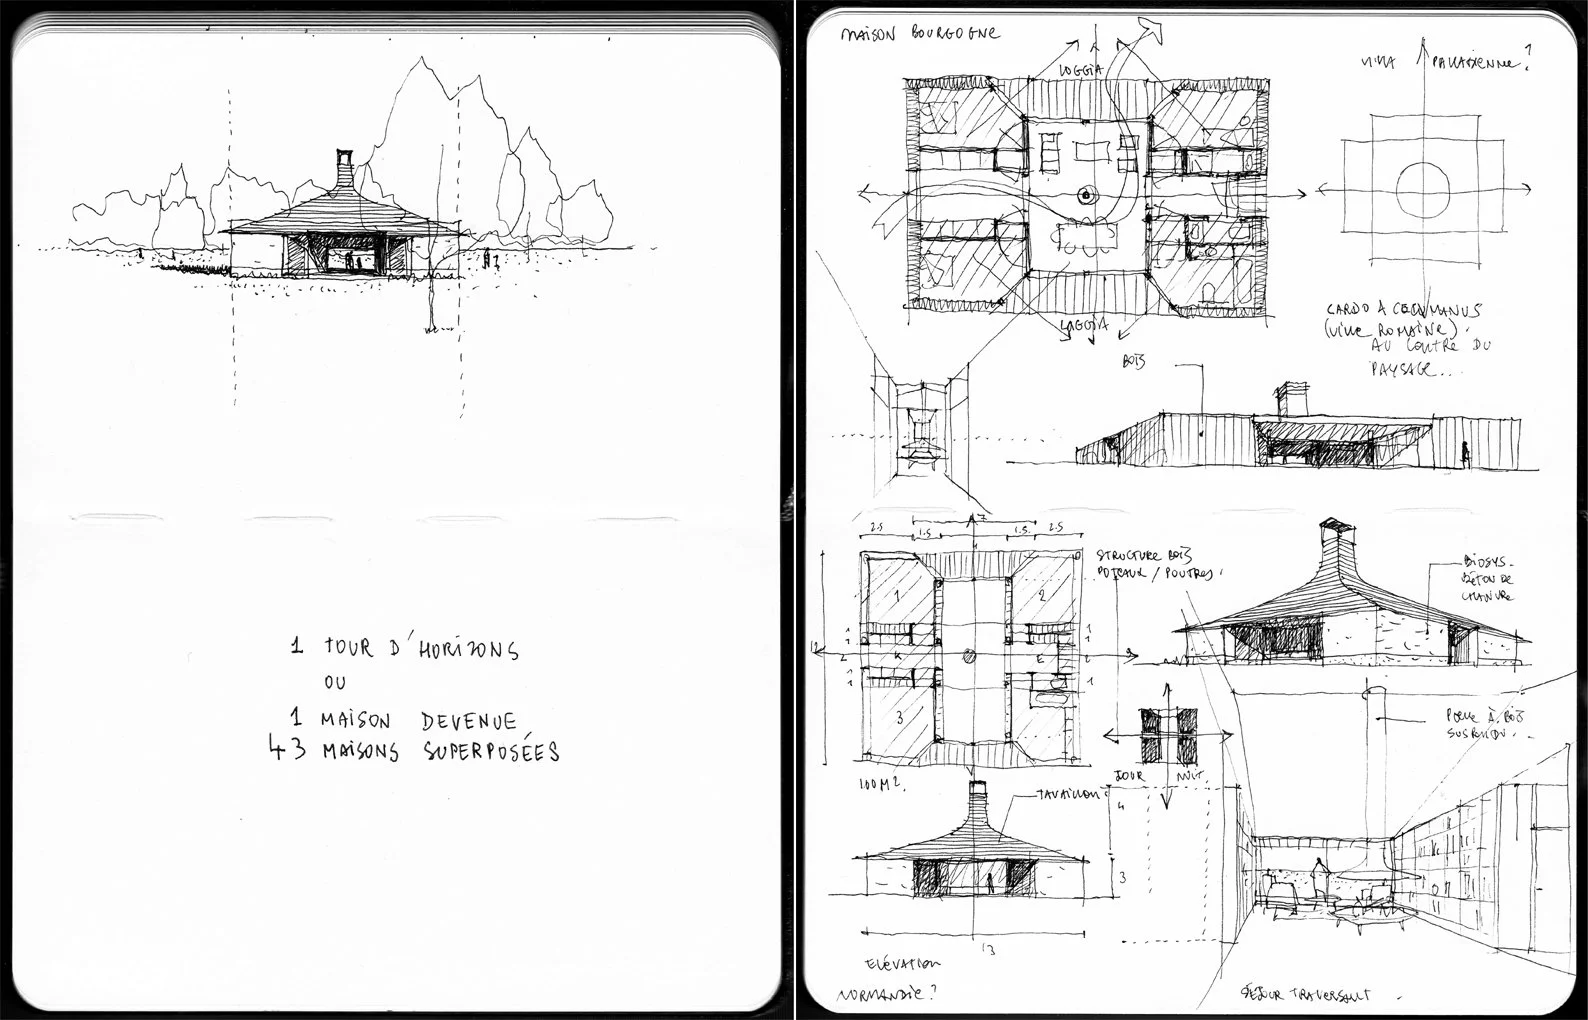 1 TOUR D'HORIZONS
OU
1 MAISON DEVENUE
43 MAISONS SUPERPOSÉES
MAISON BOURGOGNE
LOGGIA
LOGGIA
VILLA PALLADIENNE?
CARDO
(VILLE ROMAINE).
AU CENTRE DU
PAYSAGE...
BOIS
7
2.5
1.5
1.5.
2.5
1
2
3
K
E
1
1
2
1
1
1
1
1
12
100M2.
STRUCTURE BOIS
POTEAUX / POUTRES.
BIOSYS.
BÉTON DE
CHANVRE
JOUR
NUIT
POELE À BOIS
SUSPENDU.
TAVAILLON
4
3
13
ELÉVATION
NORMANDIE?
SÉJOUR TRAVERSANT